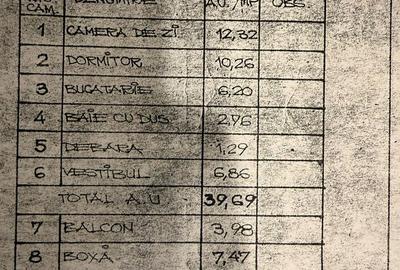 CAM. DENUMIRE A.U./MP OBS.
1 CAMERA DE ZI 12,32
2 DORMITOR 10,26
3 BUCATARIE 6,20
4 BAIE CU DUS 2,76
5 DEBARA 1,29
6 VESTIBUL 6,86
TOTAL A.U 39,69
7 BALCON 3,98
8 BOXĂ 7,47